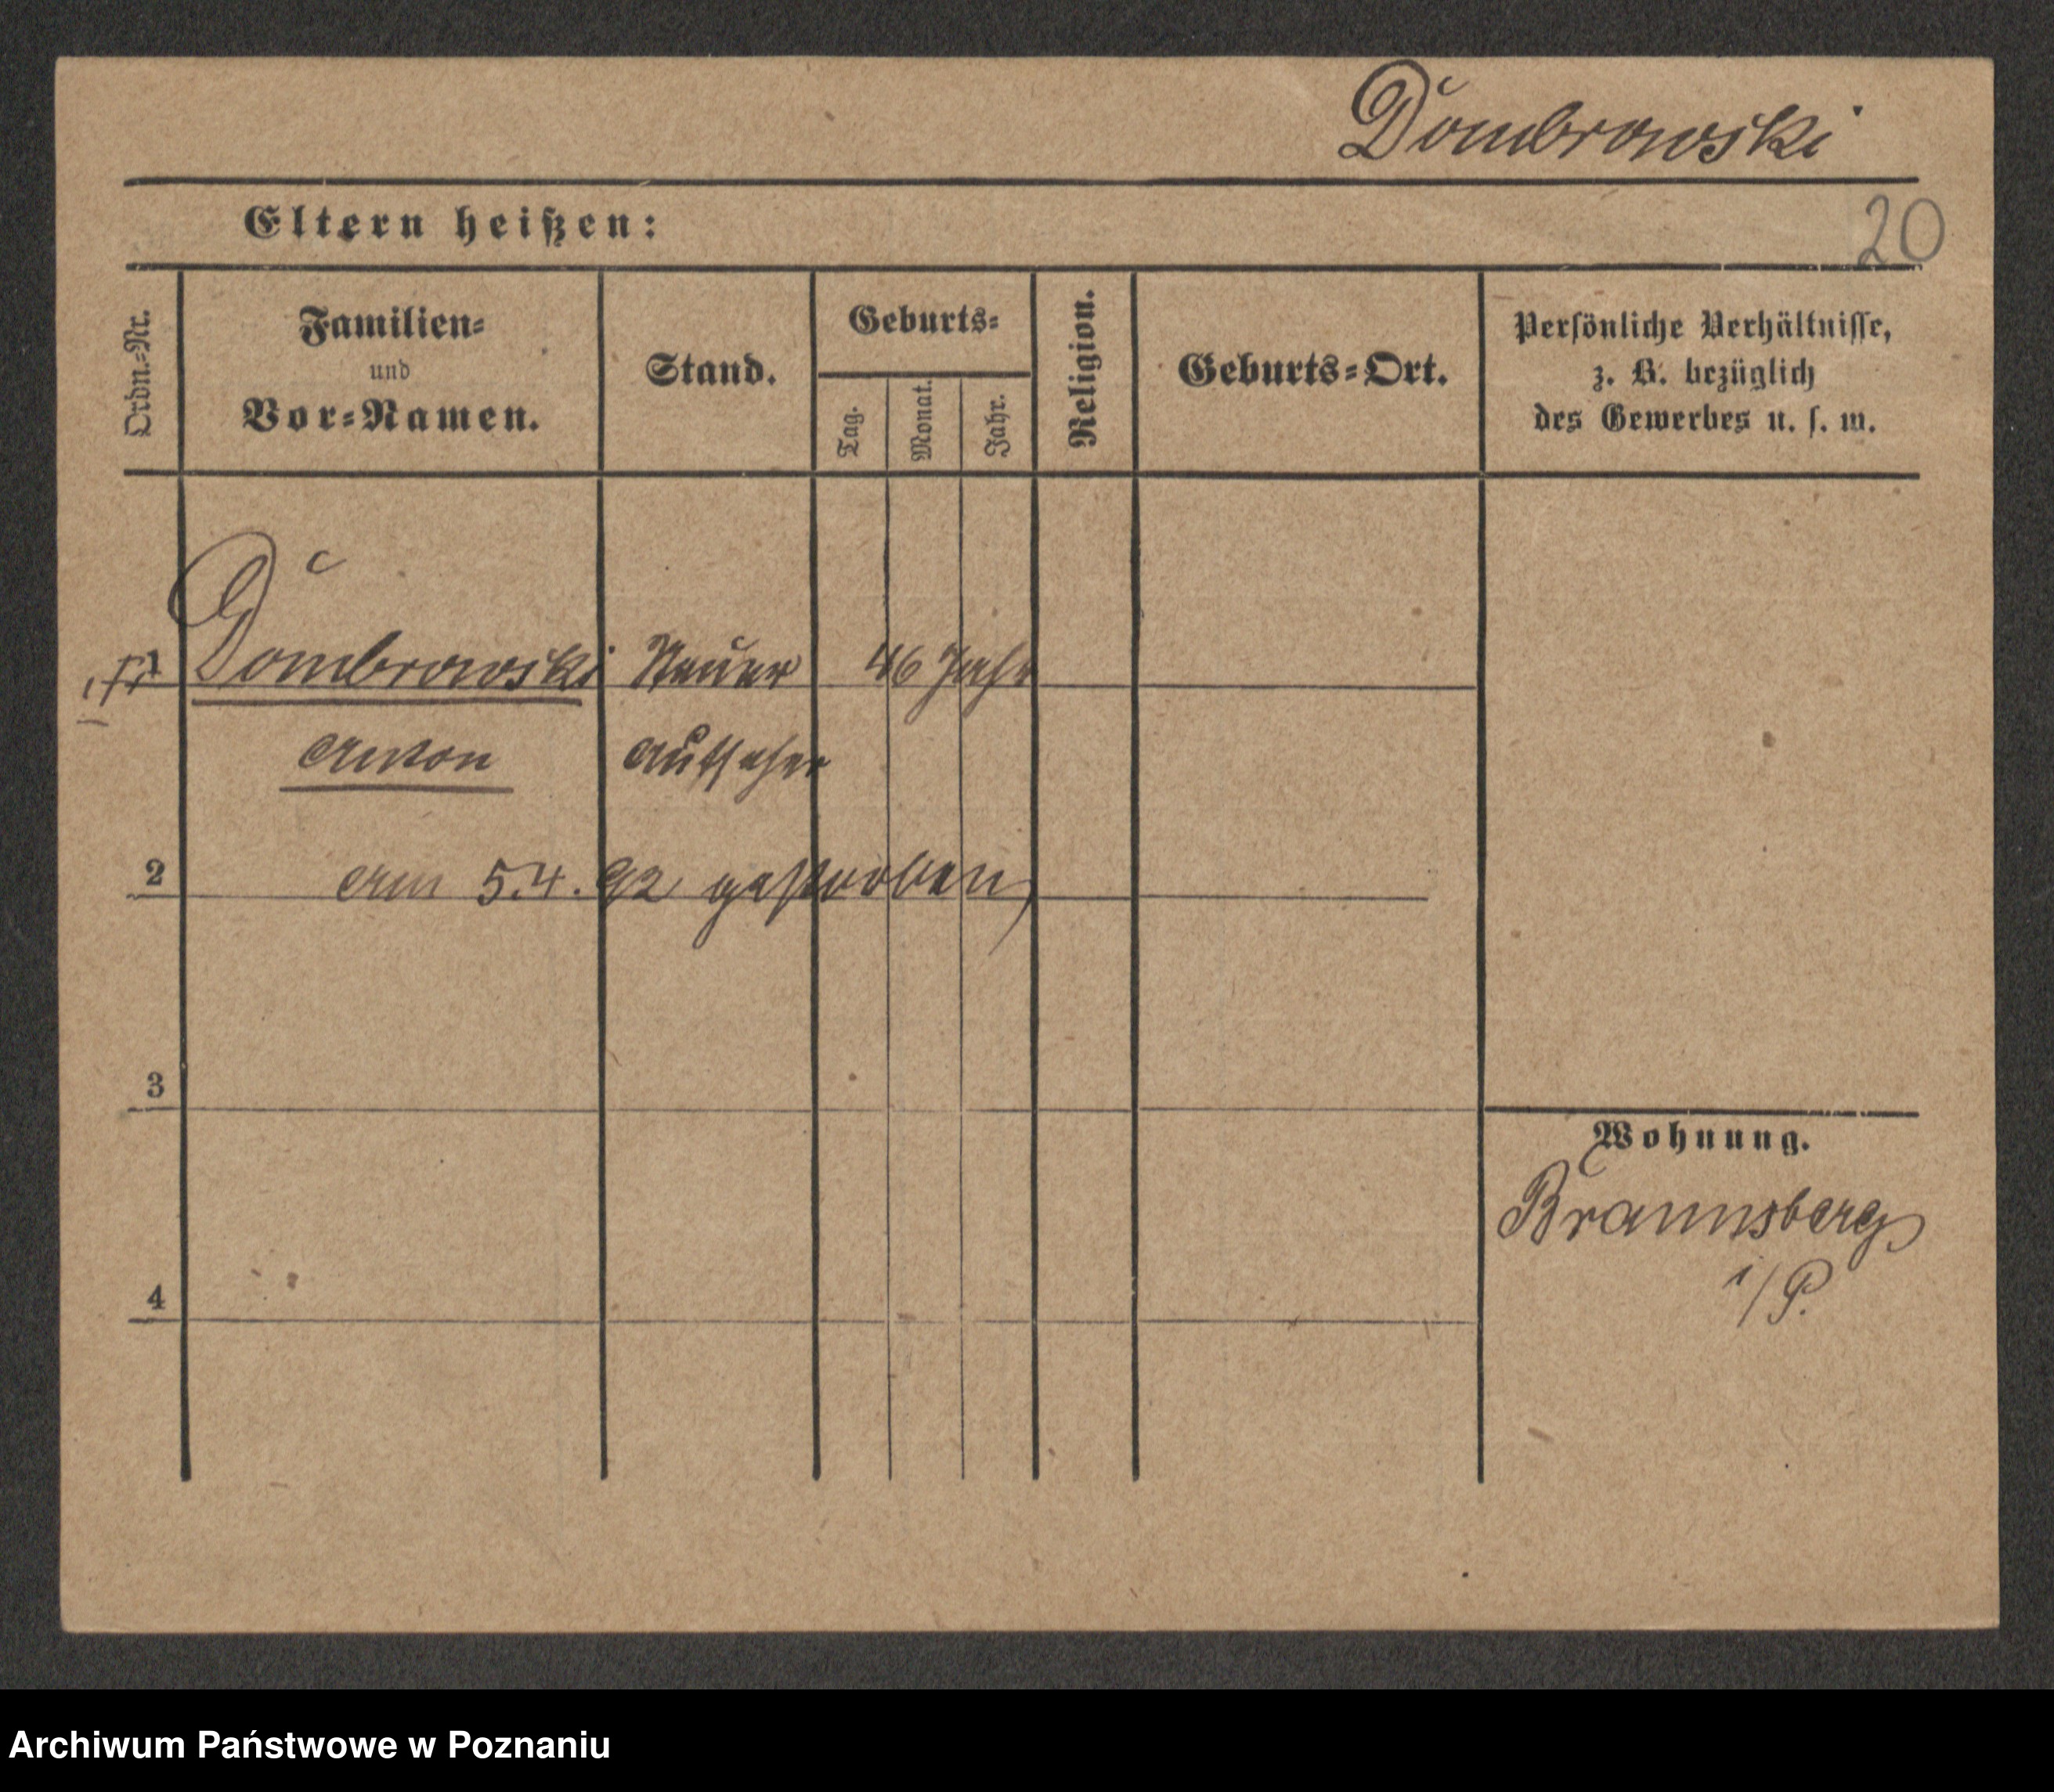 Dombrowski
20
Eltern heißen:
Ordn.=Nr.
Familien=
und
Vor=Namen.
Stand.
Geburts=
Tag.
Monat.
Jahr.
Religion.
Geburts=Ort.
Persönliche Verhältnisse,
z. B. bezüglich
des Gewerbes u. s. w.
1 Dombrowski Steuer 46 Jahr
Anton Aufseher
2 am 5.4.92 gestorben,
3
Wohnung.
Braunsberg
i/P.
4
Archiwum Państwowe w Poznaniu